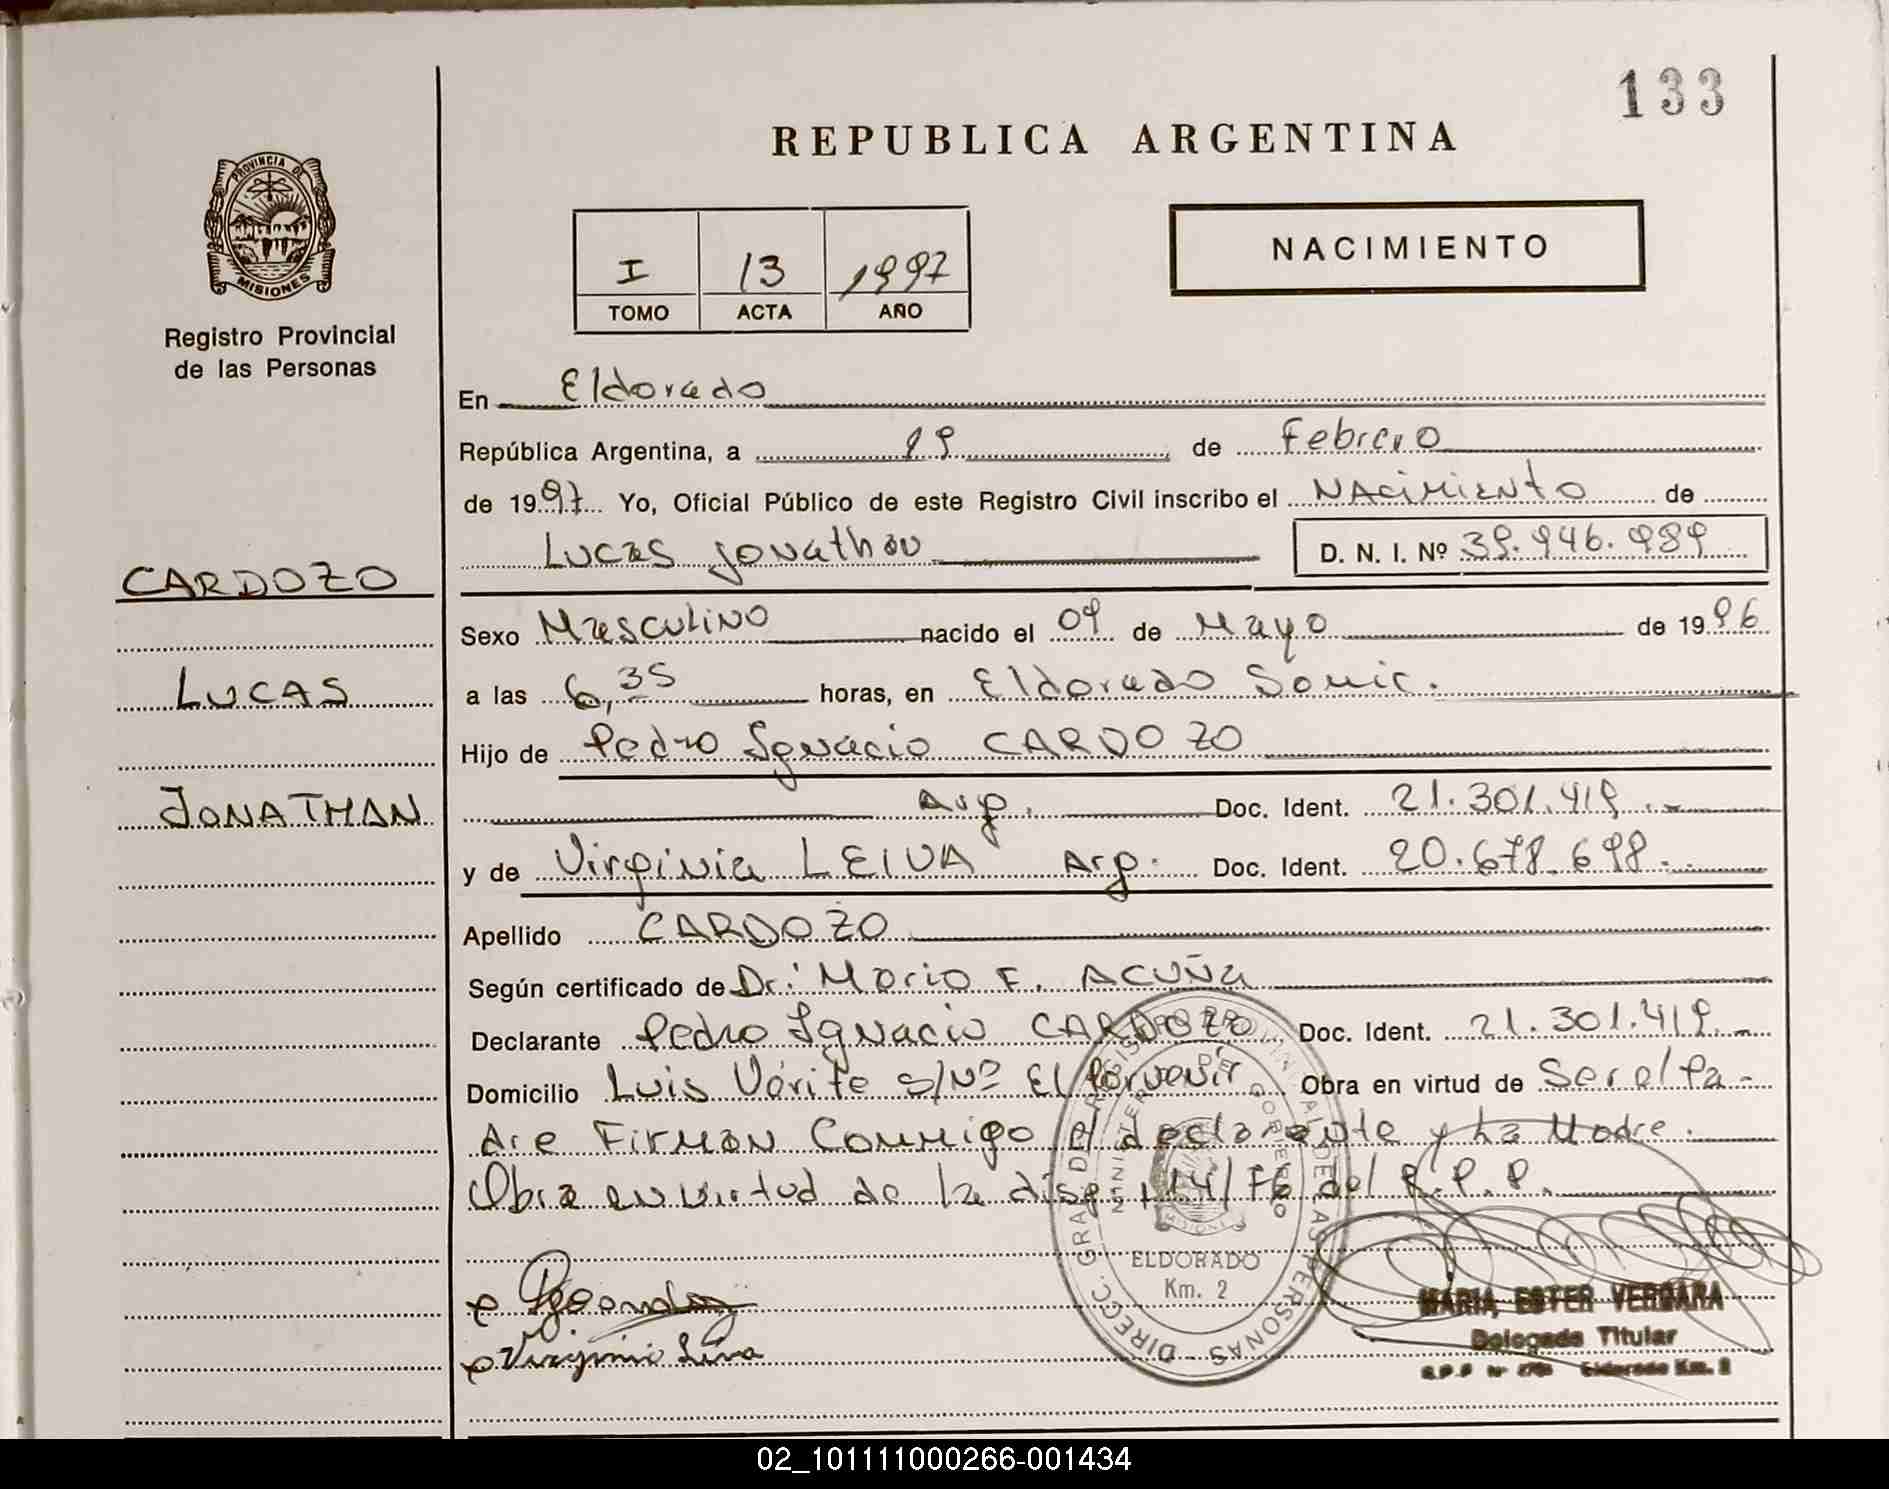 133
REPUBLICA ARGENTINA
PROVINCIA DE
MISIONES
Registro Provincial
de las Personas
I 13 1997
TOMO ACTA AÑO
NACIMIENTO
En Eldorado
República Argentina, a 19 de Febrero
de 1997 Yo, Oficial Público de este Registro Civil inscribo el Nacimiento de
Lucas Jonathan D. N. I. Nº 39.946.989
CARDOZO
Sexo Masculino nacido el 09 de Mayo de 1996
LUCAS
a las 6,35 horas, en Eldorado
Hijo de Pedro Ignacio CARDOZO
JONATHAN
Arg. Doc. Ident. 21.301.419.-
y de Virginia LEIVA Arg. Doc. Ident. 20.678.698.
Apellido CARDOZO
Según certificado de Dr. Mario F. ACUÑA
Declarante Pedro Ignacio CARDOZO Doc. Ident. 21.301.419.-
Domicilio Luis Vérite s/Nº El Porvenir Obra en virtud de Ser el Pa-
dre Firman Conmigo el declarante y La Madre.
Obra en virtud de la disp. 14/76 del R.P.P.
DIRECC. GRAL. DE REGISTRO PROVINCIAL DE LAS PERSONAS
MINISTERIO DE GOBIERNO
MISIONES
ELDORADO
Km. 2
Virginia Leiva
MARIA ESTER VERGARA
Delegada Titular
Eldorado Km. 2
02_101111000266-001434